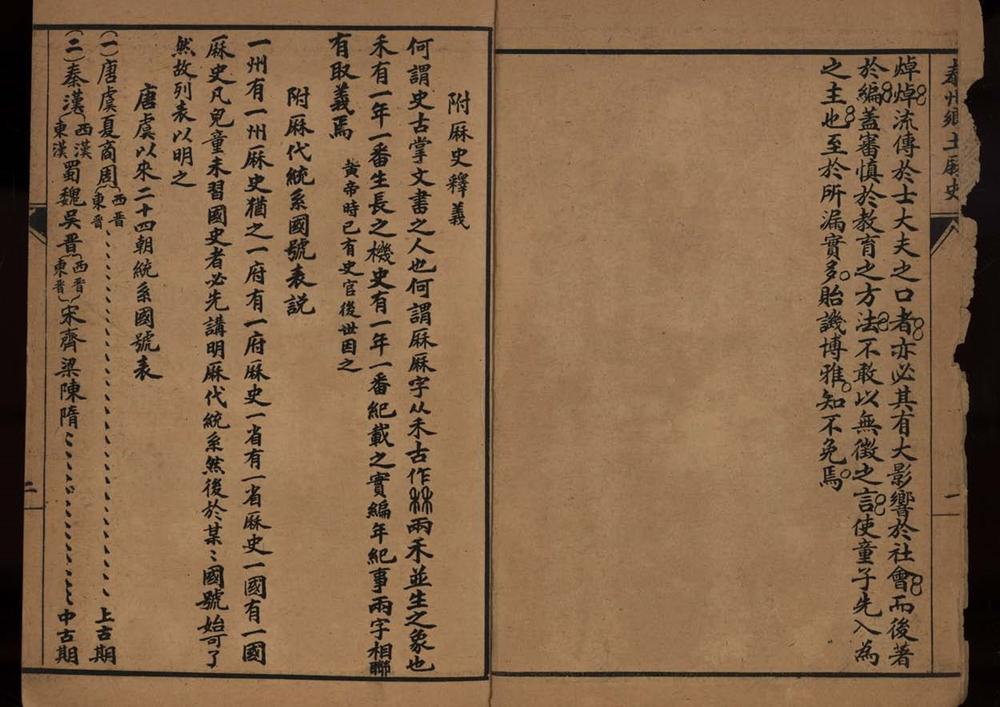 泰州鄉土厤史
一
焯焯流傳於士大夫之口者亦必其有大影響於社會而後著
於編蓋審慎於教育之方法不敢以無徵之言使童子先入為
之主也至於所漏實多貽譏博雅知不免焉
附厤史釋義
何謂史古掌文書之人也何謂厤厤字从禾古作秝兩禾並生之象也
禾有一年一番生長之機史有一年一番紀載之實編年紀事兩字相聯
有取義焉 黄帝時已有史官後世因之
附厤代統系國號表説
一州有一州厤史猶之一府有一府厤史一省有一省厤史一國有一國
厤史凡兒童未習國史者必先講明厤代統系然後於某〻國號始可了
然故列表以明之
唐虞以來二十四朝統系國號表
(一)唐虞夏商周(西晋東晋、、、、、、、、、、、、上古期
(二)秦漢(西漢東漢)蜀魏吳晋(西晋東晋)宋齊梁陳隋、、、、、、、、、、中古期
二